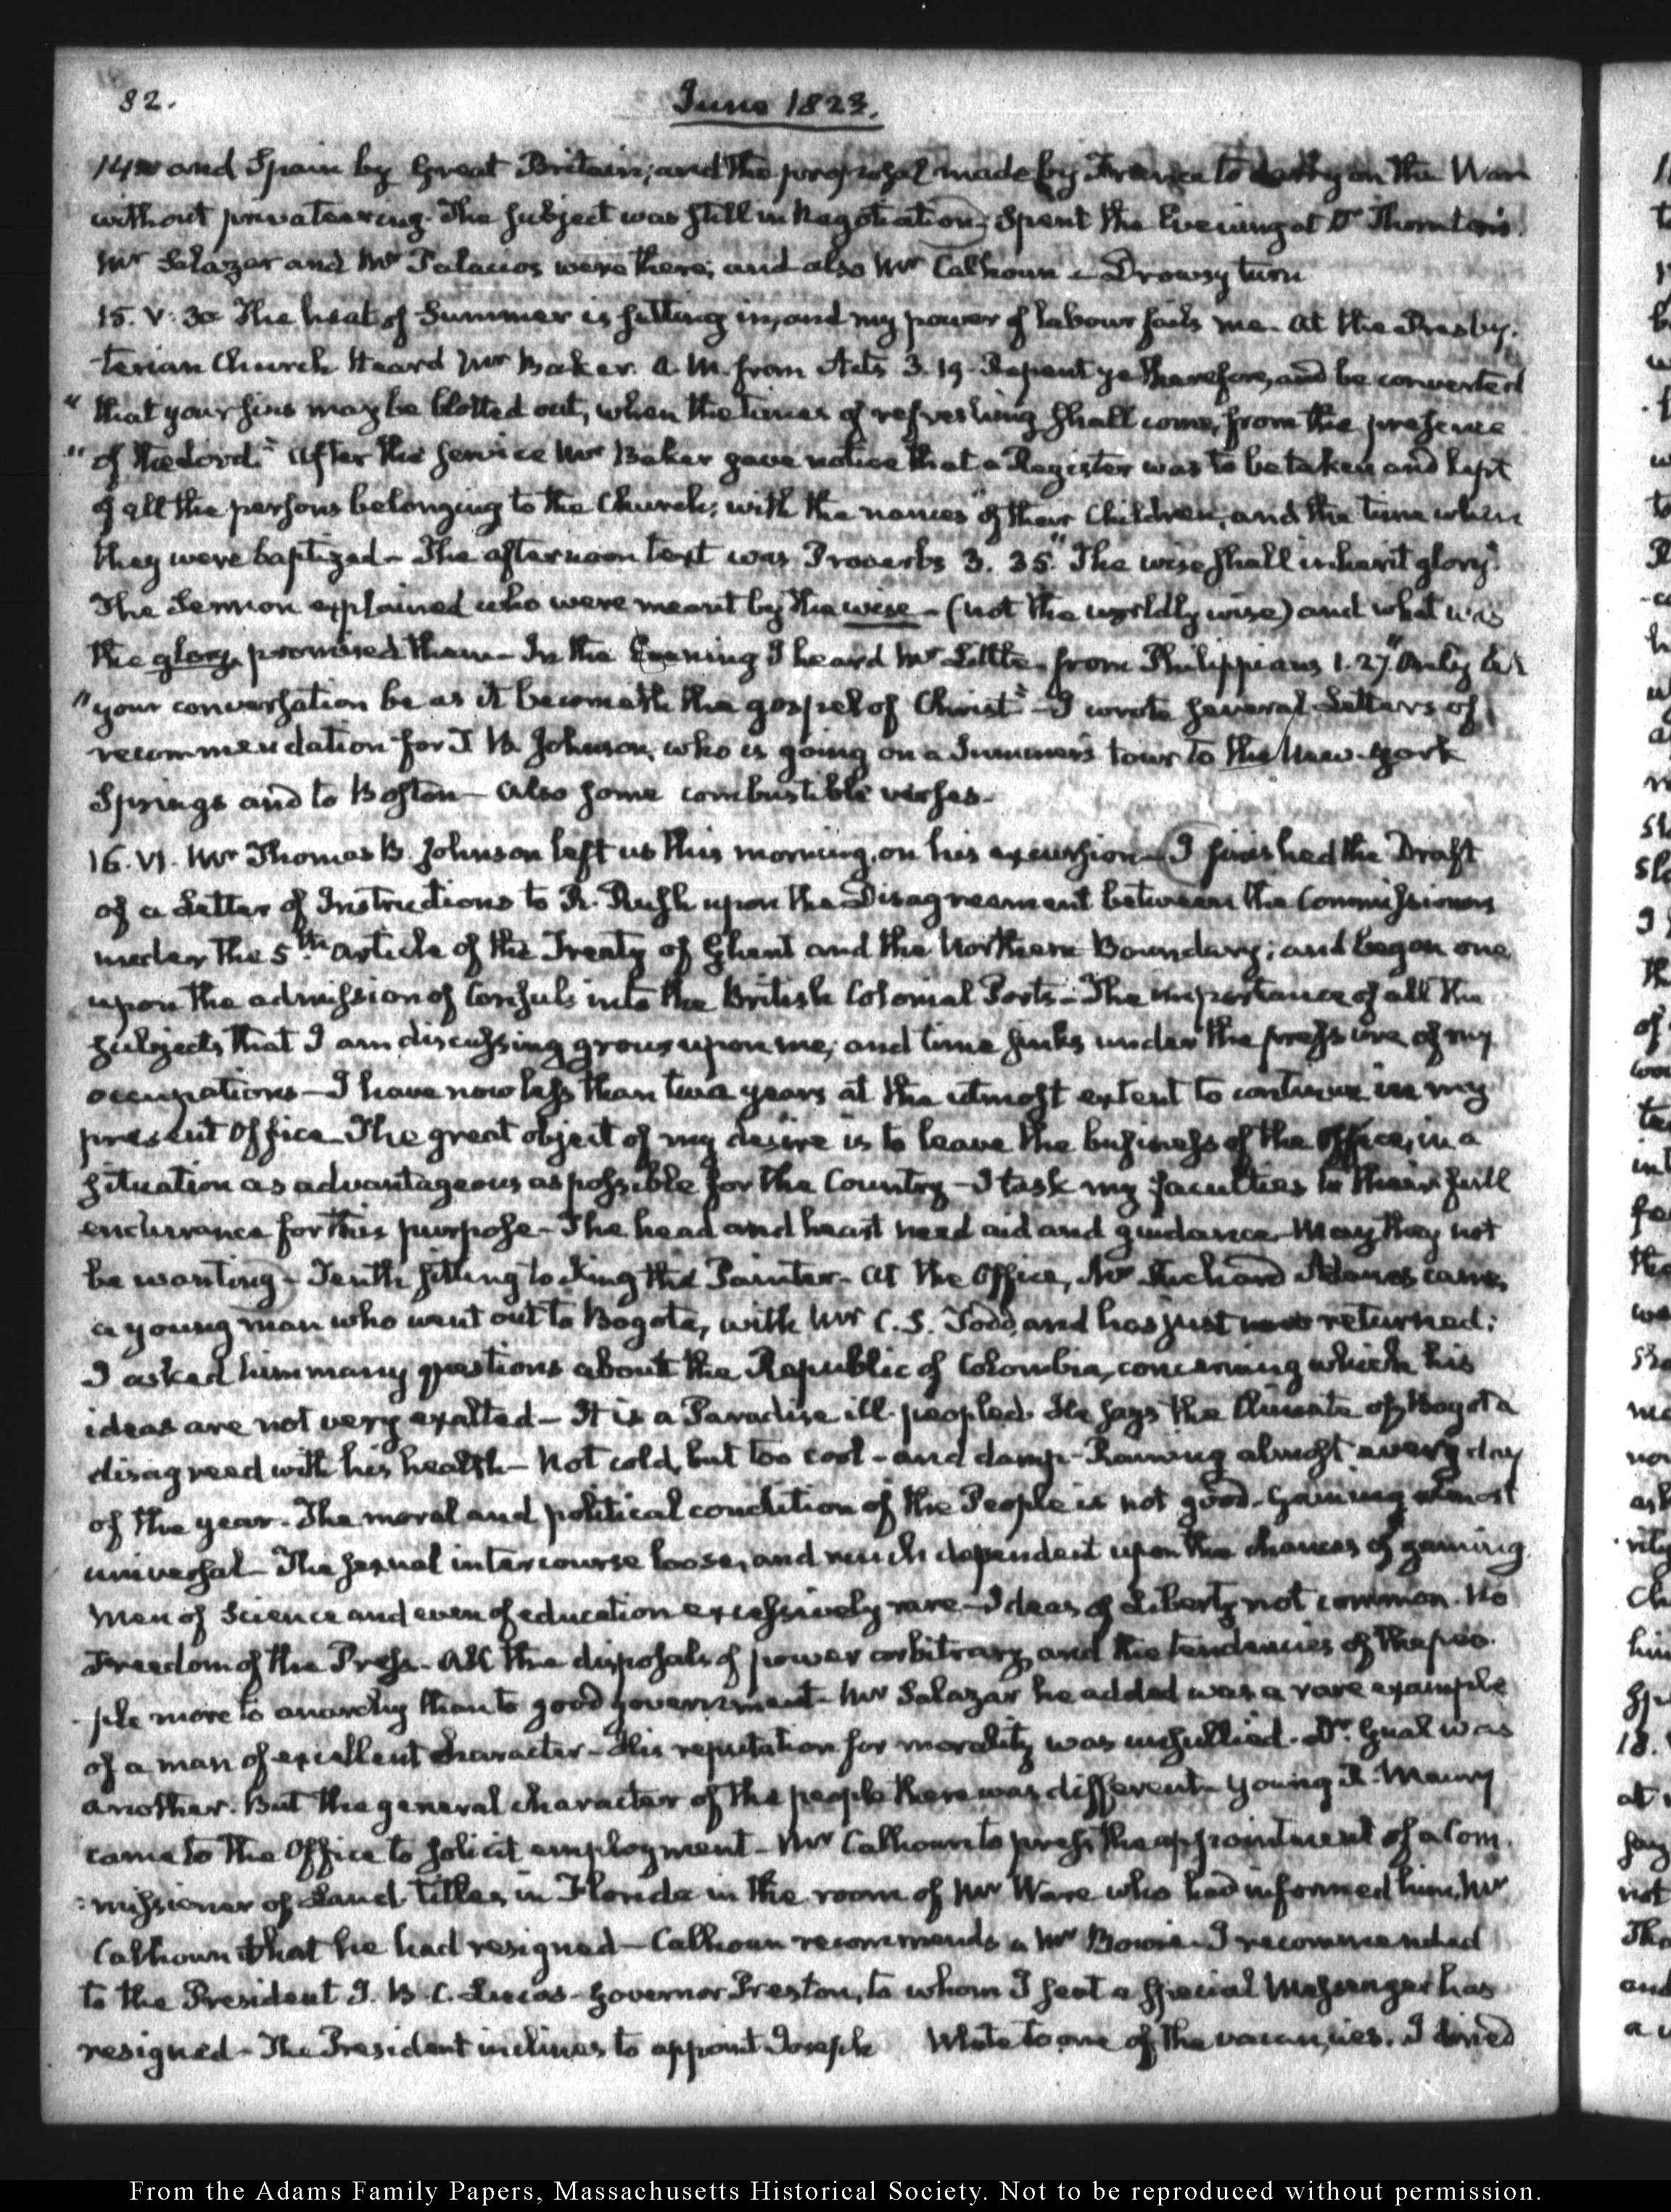 82.
June 1823.
14. and Spain by Great Britain; and the proposal made by France to carry on the War
without privateering. The subject was still in Negotiation. Spent the Evening at Dr Thornton's.
Mr Salazar and Mr Palacios were there; and also Mr Calhoun - Drowsy turn
15. V:30. The heat of Summer is setting in, and my power of labour fails me. At the Presby-
-terian Church Heard Mr Baker. A.M. from Acts 3.19. Repent ye therefore, and be converted
"that your sins may be blotted out, when the times of refreshing shall come, from the presence
"of the Lord." After the service Mr Baker gave notice that a Register was to be taken and kept
of all the persons belonging to the Church; with the names of their Children, and the time when
they were baptized - The afternoon text was Proverbs 3. 35. "The wise shall inherit glory."
The Sermon explained who were meant by the wise - (not the worldly wise) and what was
the glory promised them - In the Evening I heard Mr Little, from Philippians 1.27. "Only let
"your conversation be as it becometh the gospel of Christ" - I wrote several Letters of
recommendation for T. B. Johnson, who is going on a Summer's tour to the New-York
Springs and to Boston - Also some combustible verses.
16. VI. Mr Thomas B. Johnson left us this morning, on his excursion - I finished the Draft
of a Letter of Instructions to R. Rush upon the Disagreement between the Commissioners
under the 5th Article of the Treaty of Ghent and the Northern Boundary; and began one
upon the admission of Consuls into the British Colonial Ports - The importance of all the
subjects that I am discussing grows upon me, and time sinks under the pressure of my
occupations - I have now less than two years at the utmost extent to continue in my
present Office. The great object of my desire is to leave the business of the Office, in a
situation as advantageous as possible for the Country - I task my faculties to their full
endurance for this purpose - The head and heart need aid and guidance - May they not
be wanting - Tenth sitting to King the Painter - At the Office, Mr Richard Adams came,
a young man who went out to Bogota, with Mr C. S. Todd, and has just returned:
I asked him many questions about the Republic of Colombia, concerning which his
ideas are not very exalted - It is a Paradise ill-peopled. He says the Climate of Bogota
disagreed with his health - Not cold, but too cool - and damp - Raining almost every day
of the year. The moral and political condition of the People is not good - Gaming almost
universal - The sexual intercourse loose, and much dependent upon the chances of gaming.
Men of Science and even of education excessively rare - Ideas of Liberty not common. No
Freedom of the Press - All the disposals of power arbitrary, and the tendencies of the peo-
-ple more to anarchy than to good government - Mr Salazar he added was a rare example
of a man of excellent character - His reputation for morality was unsullied. Dr. Gual was
another. But the general character of the people there was different - Young R. Maury
came to the Office to solicit employment - Mr Calhoun to press the appointment of a Com-
-missioner of Land titles in Florida in the room of Mr Ware who had informed him, Mr
Calhoun that he had resigned - Calhoun recommends a Mr Bowie - I recommended
to the President J. B. C. Lucas - Governor Preston, to whom I sent a special Messenger has
resigned - The President inclines to appoint Joseph White to one of the vacancies. I dined
From the Adams Family Papers, Massachusetts Historical Society. Not to be reproduced without permission.